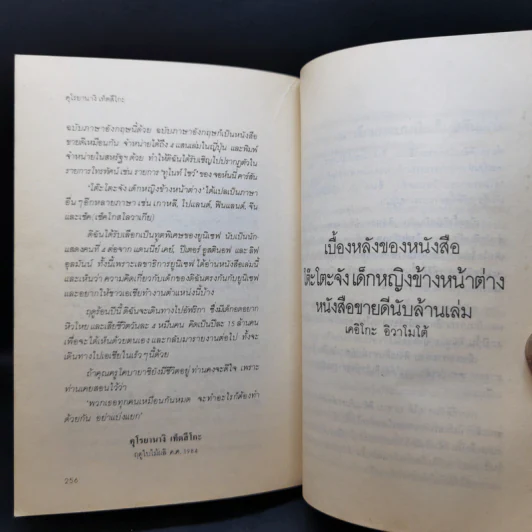 คุโรยานางิ เท็ตสึโกะ
ฉบับภาษาอังกฤษนี้ด้วย ฉบับภาษาอังกฤษก็เป็นหนังสือ
ขายดีเหมือนกัน จำหน่ายได้ถึง ๔ แสนเล่มในญี่ปุ่น และพิมพ์
จำหน่ายในสหรัฐฯ ด้วย ทำให้ดิฉันได้รับเชิญไปปรากฏตัวใน
รายการโทรทัศน์ เช่น รายการ 'ทูไนท์ โชว์' ของ จอห์นนี่ คาร์สัน
'โต๊ะโตะจัง เด็กหญิงข้างหน้าต่าง' ได้แปลเป็นภาษา
อื่น ๆ อีกหลายภาษา เช่น เกาหลี, โปแลนด์, ฟินแลนด์, จีน
และเช็ค (เช็คโกสโลวาเกีย)
ดิฉันได้รับเลือกเป็นทูตพิเศษของยูนิเซฟ นับเป็นนัก
แสดงคนที่ ๔ ต่อจาก แดนนี่ย์ เคย์, ปีเตอร์ อูสตินอฟ และ ลิฟ
อุลมันน์ ทั้งนี้เพราะเลขาธิการยูนิเซฟ ได้อ่านหนังสือเล่มนี้
และเห็นว่า ความคิดเกี่ยวกับเด็กของดิฉันตรงกันกับยูนิเซฟ
และอยากให้ชาวเอเชียทำงานตำแหน่งนี้บ้าง
ฤดูร้อนปีนี้ ดิฉันจะเดินทางไปอัฟริกา ซึ่งมีเด็กอดอยาก
หิวโหย และเสียชีวิตวันละ ๔ หมื่นคน คิดเป็นปีละ 15 ล้านคน
เพื่อจะได้เห็นด้วยตนเอง และกลับมารายงานต่อไป ทั้งจะ
เดินทางไปเอเชียในเร็ว ๆ นี้ด้วย
ถ้าคุณครูโคบายาชิยังมีชีวิตอยู่ ท่านคงจะดีใจ เพราะ
ท่านเคยสอนไว้ว่า
'พวกเธอทุกคนเหมือนกันหมด จะทำอะไรก็ต้องทำ
ด้วยกัน อย่าแบ่งแยก'
คุโรยานางิ เท็ตสึโกะ
ฤดูใบไม้ผลิ ค.ศ.
256
เบื้องหลังของหนังสือ
โต๊ะโตะจัง เด็กหญิงข้างหน้าต่าง
หนังสือขายดีนับล้านเล่ม
เคอิโกะ อิวาโมโต้